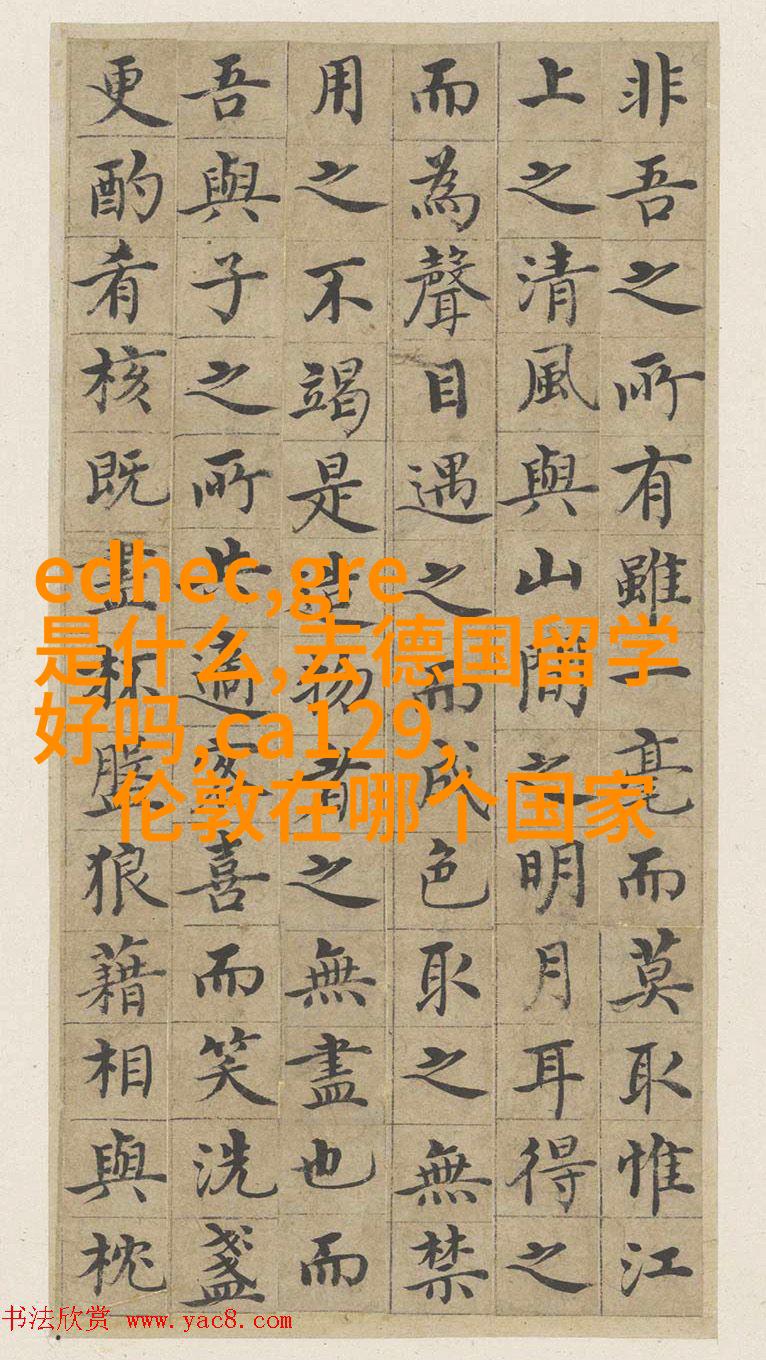 非吾之所有雖一毫而莫取惟江
上之清風與山間之明月耳得之
而為聲目遇之而成色取之無禁
用之不竭是造物者之無盡也而
吾與子之所共適客喜而笑洗盞
更酌肴核既盡杯盤狼藉相與枕
edhec,gre
是什么,去德国留学
好吗,ca129,
伦敦在哪个国家
书法欣赏 www.yac8.com